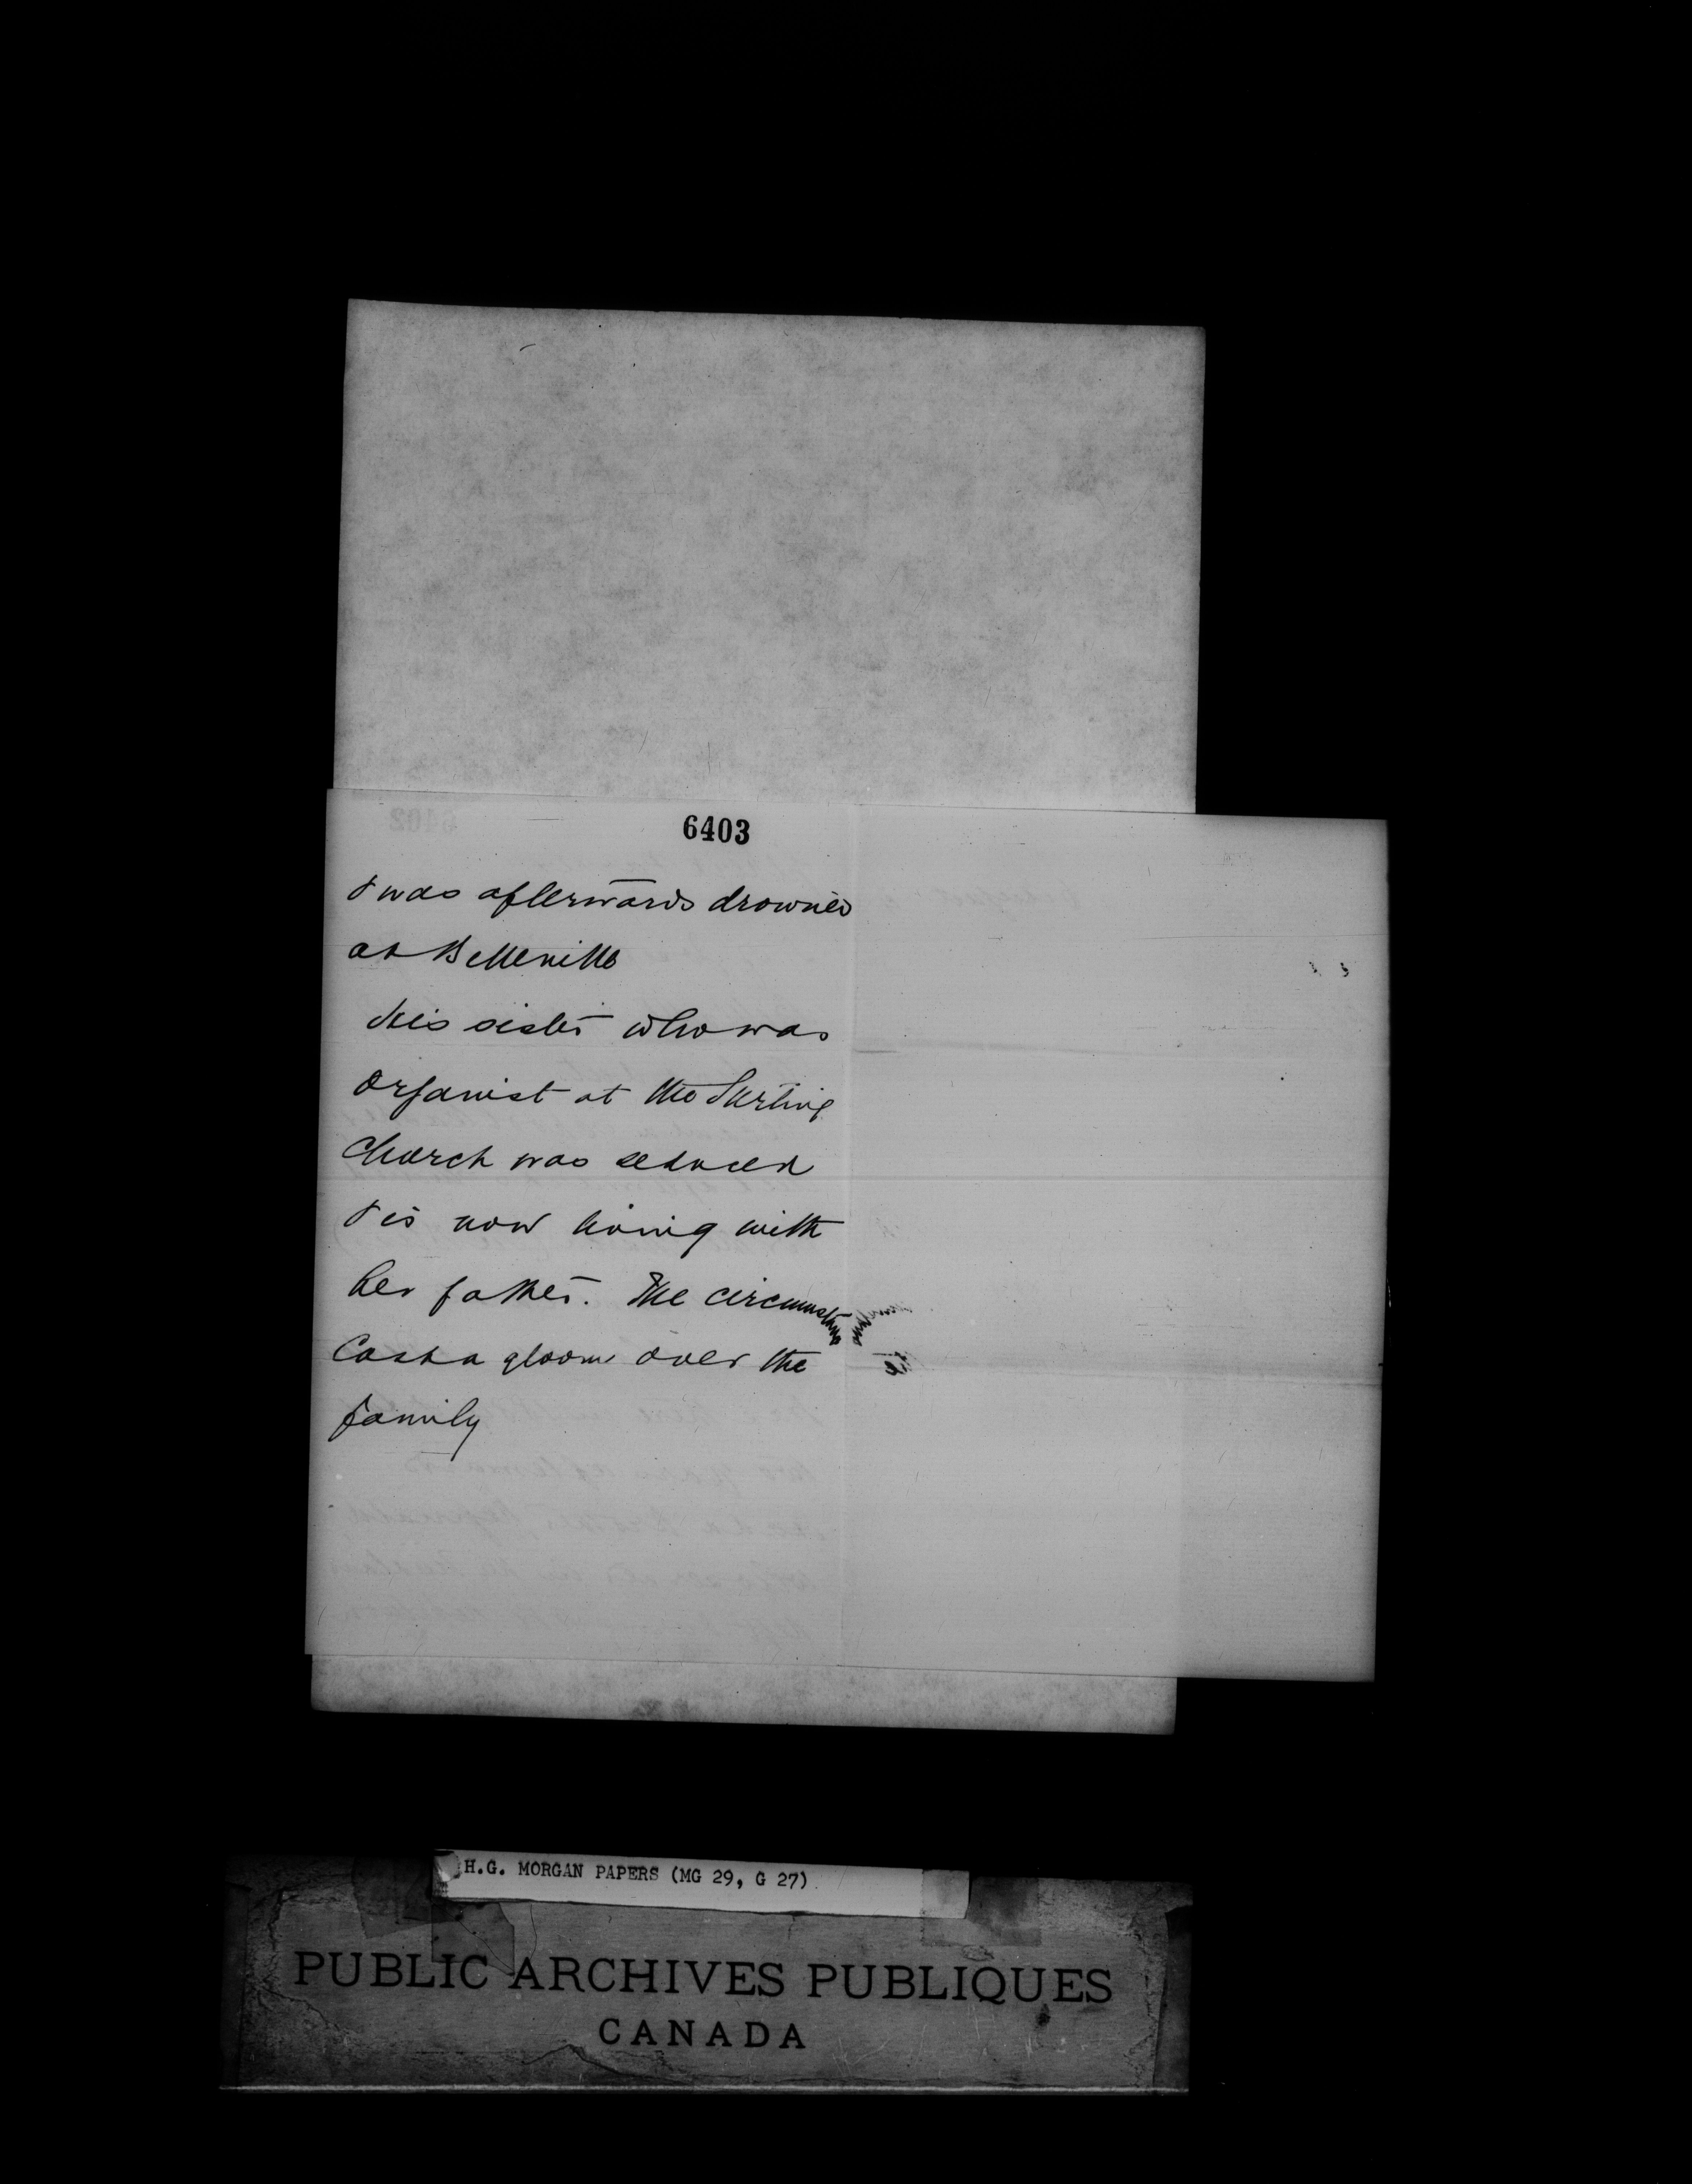 6403
& was afterwards drowned
at Belleville
His sister who was
organist at the Stirling
Church was seduced
& is now living with
her father. The circumstance
Cast a gloom over the
family
H.G. MORGAN PAPERS (MG 29, G 27)
PUBLIC ARCHIVES PUBLIQUES
CANADA